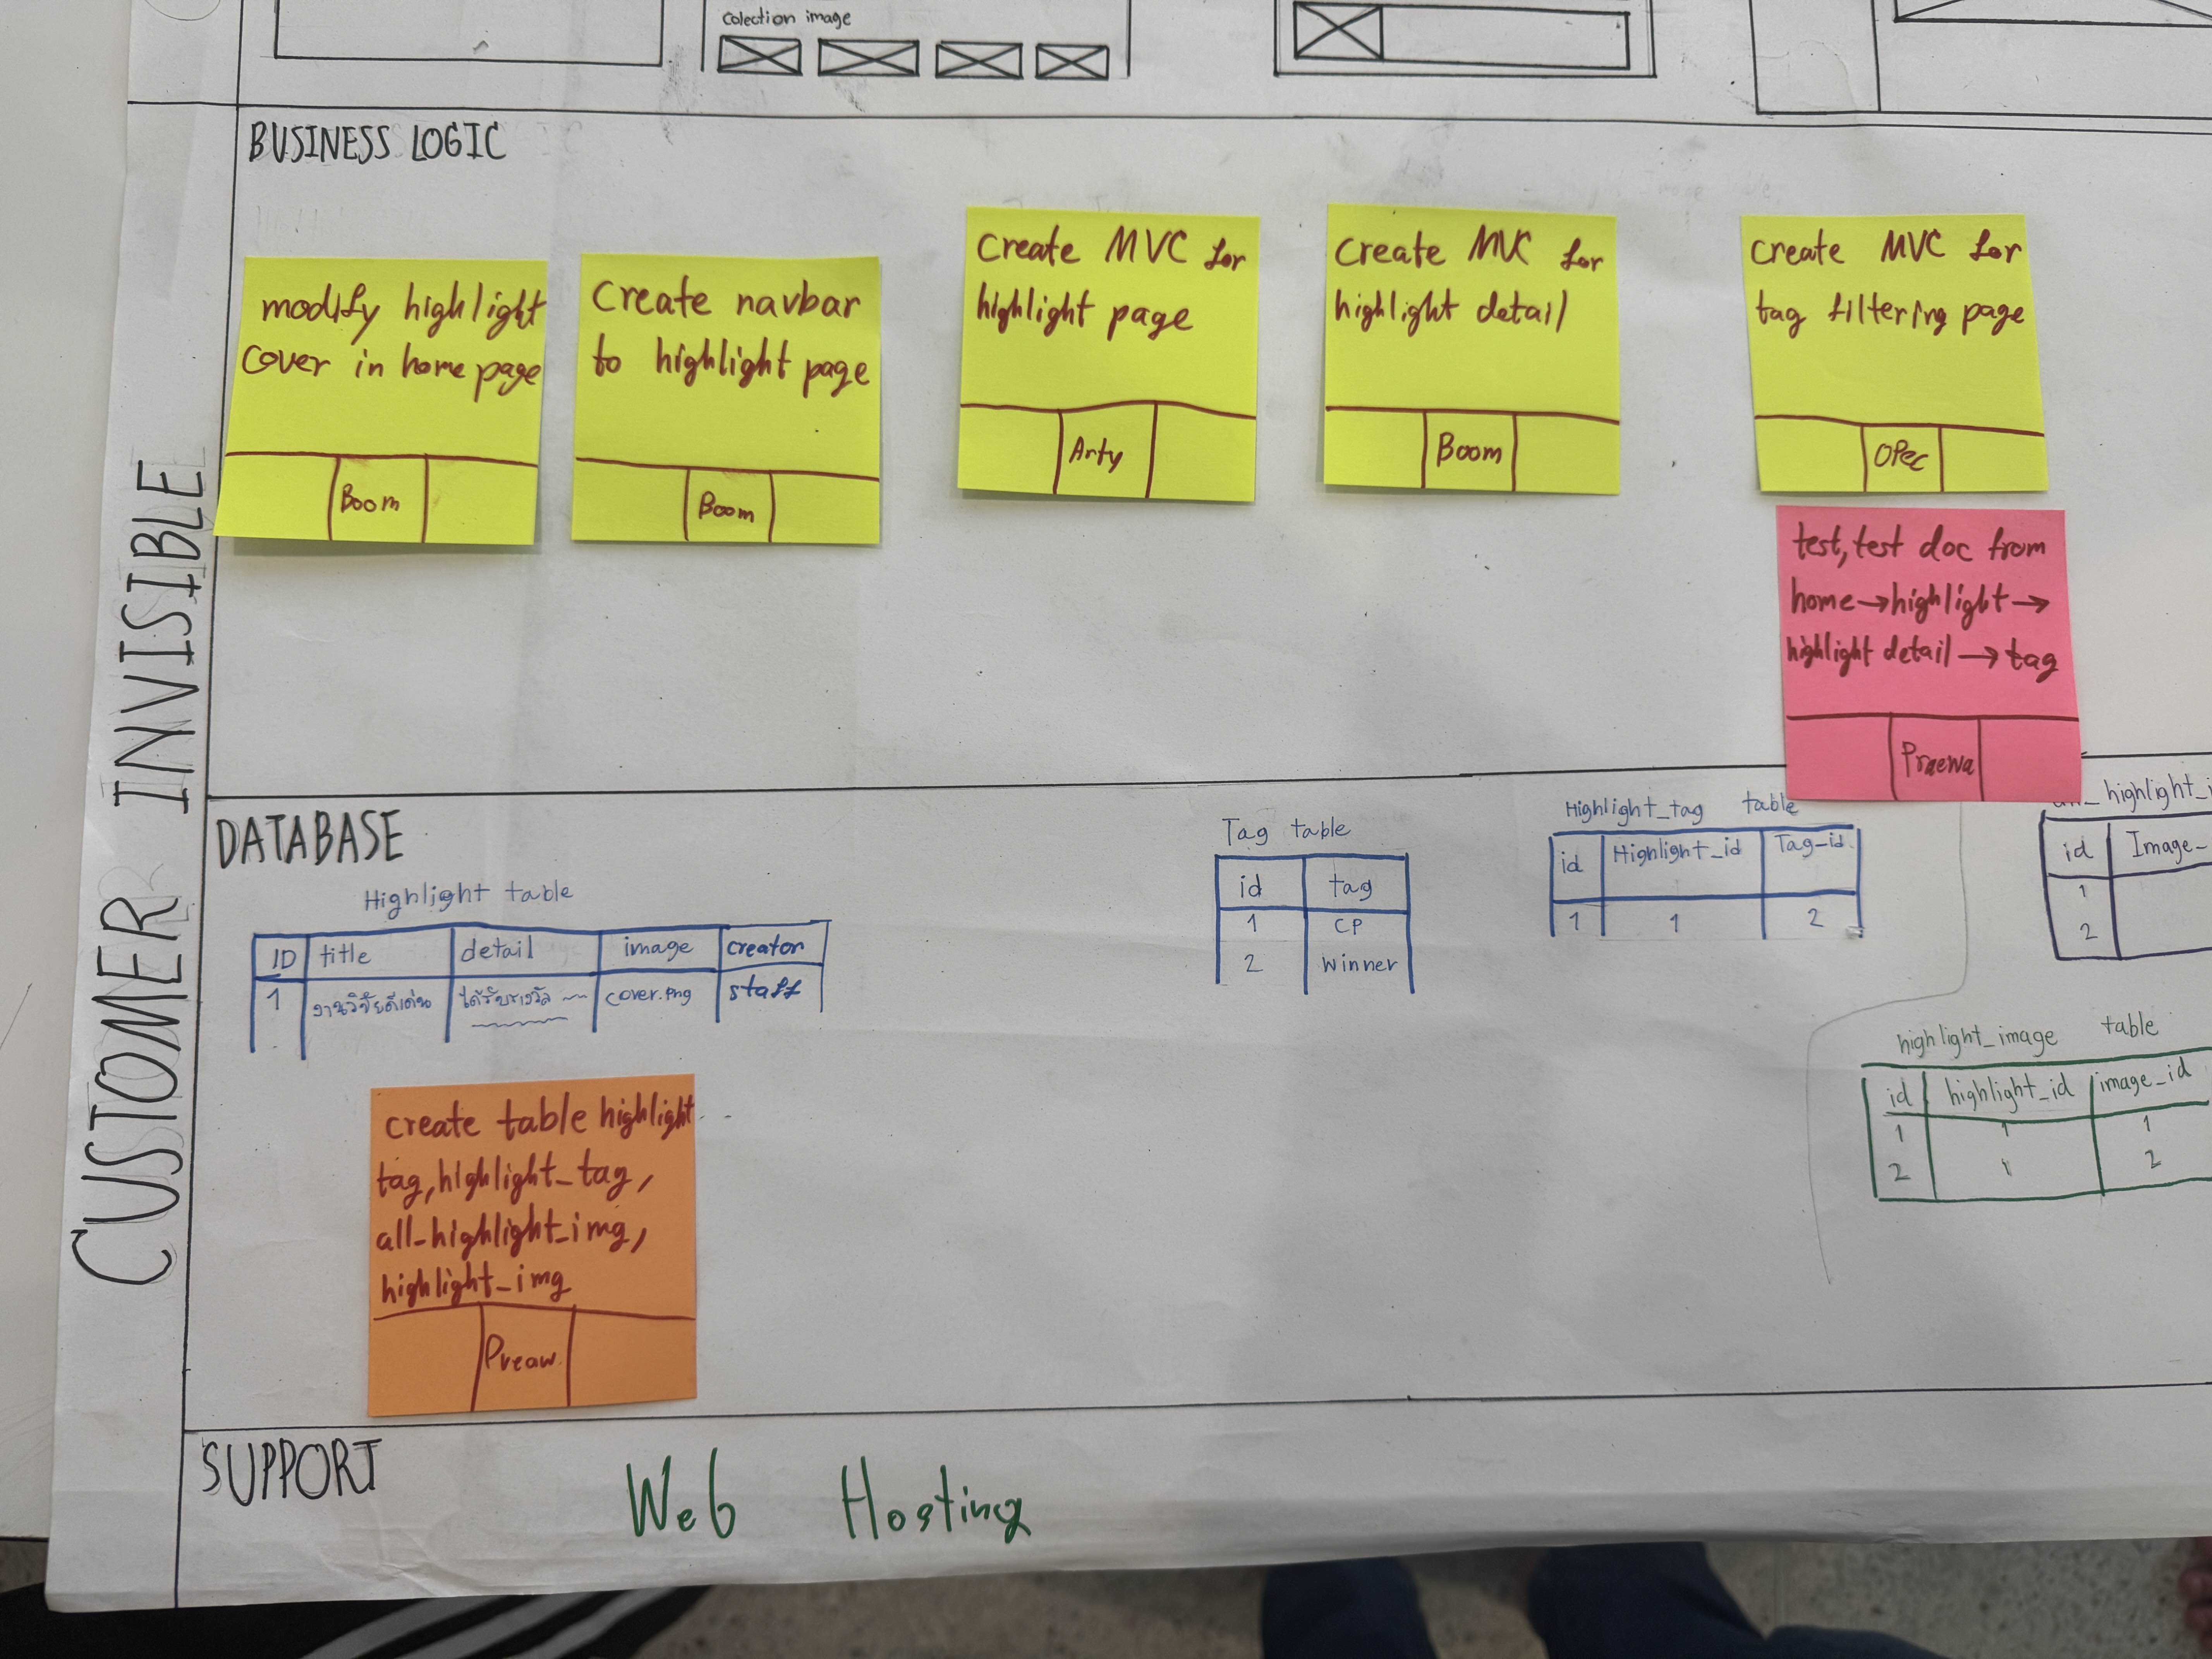 Colection image
BUSINESS LOGIC
modify highlight
cover in home page
Boom
Create navbar
to highlight page
Boom
Create MVC for
highlight page
Arty
Create MVC for
highlight detail
Boom
Create MVC for
tag filtering page
OPec
test, test doc from
home→highlight→
highlight detail→tag
Praewa
CUSTOMER INVISIBLE
DATABASE
Highlight table
ID title detail image creator
1 งานวิจัยดีเด่น ได้รับรางวัล cover.png staff
Tag table
id tag
1 CP
2 Winner
Highlight_tag table
id Highlight_id Tag_id
1 1 2
highlight_i
id Image_
1
2
highlight_image table
id highlight_id image_id
1 1 1
2 1 2
create table highlight
tag, highlight_tag,
all_highlight_img,
highlight_img
Preaw
SUPPORT
Web Hosting